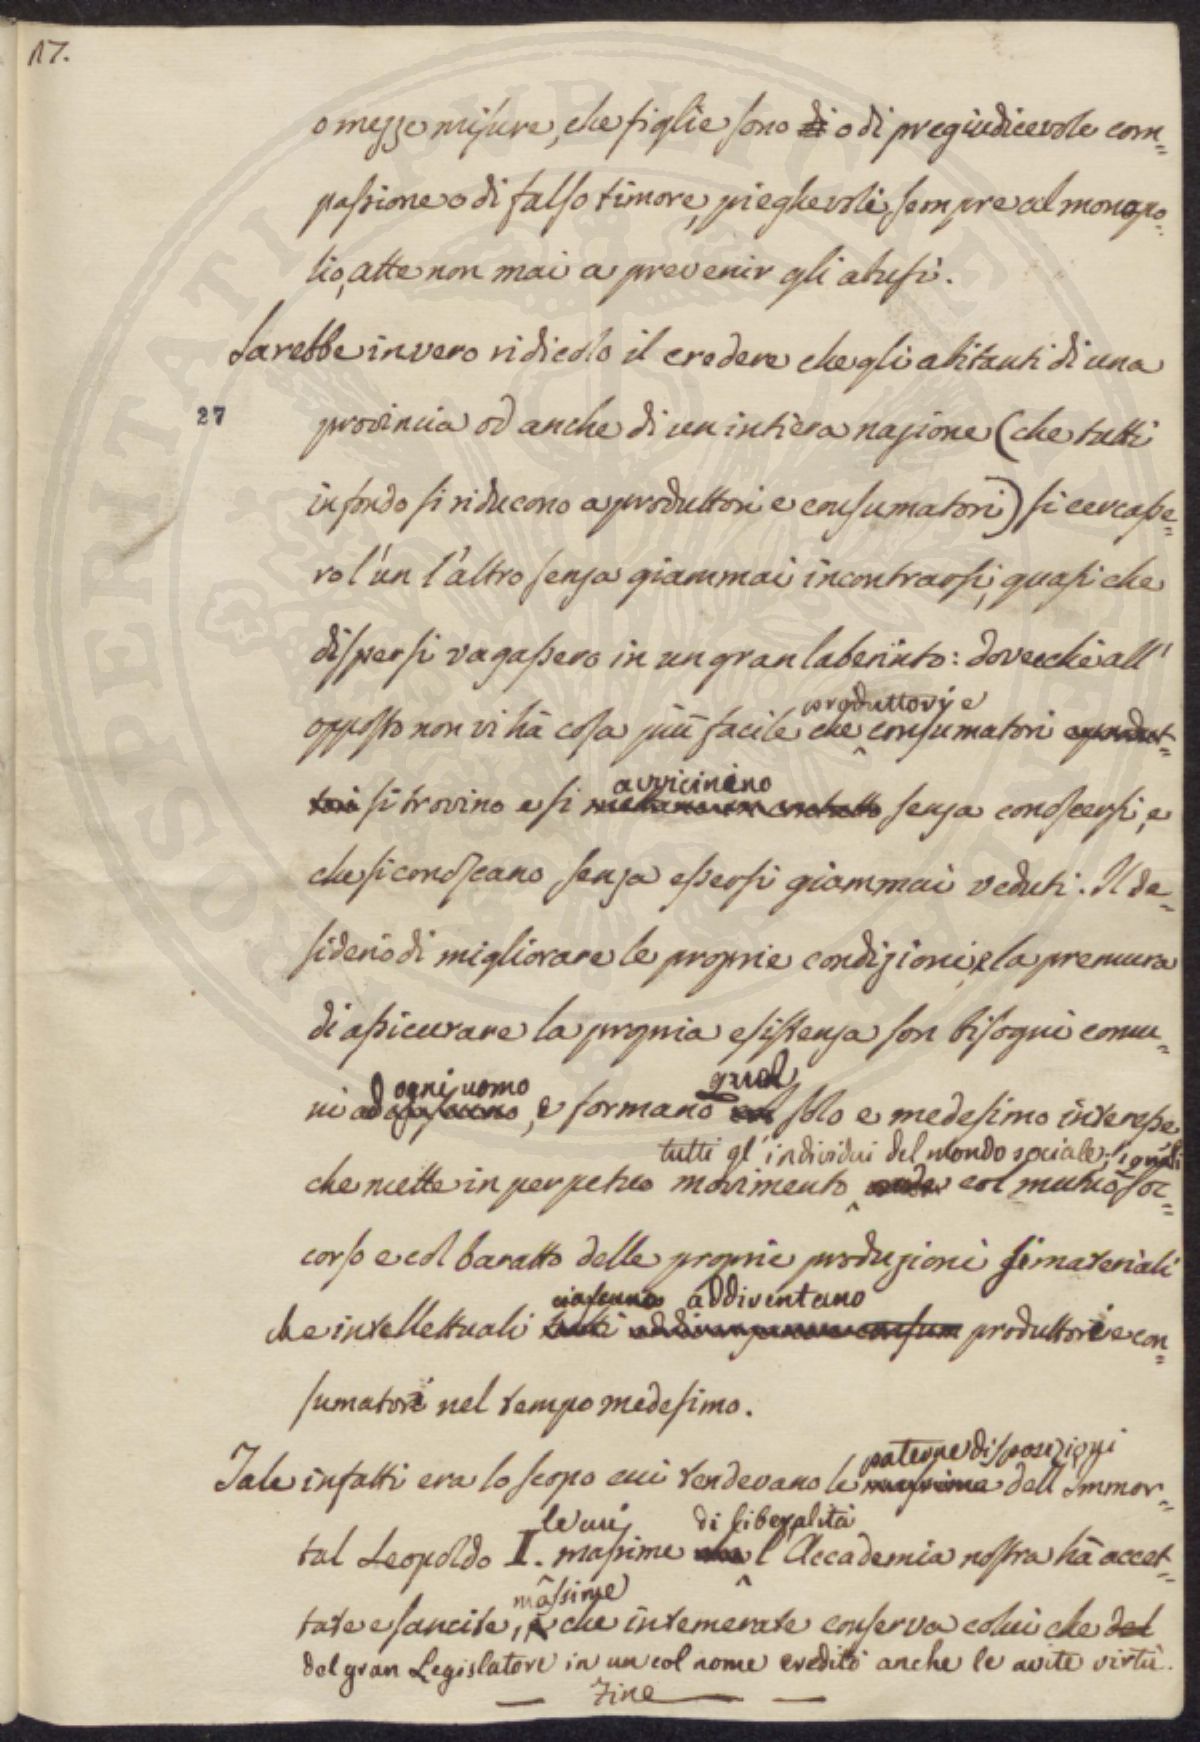 17.
o mezze misure, che figlie sono di o di pregiudicevole com=
passione o di falso timore, pieghevoli sempre al monopo=
lio, atte non mai a prevenir gli abusi.
Sarebbe in vero ridicolo il credere che gli abitanti di una
27
provincia od anche di un intiera nazione (che tutti
in fondo si riducono a produttori e consumatori) si cercasse=
ro l'un l'altro senza giammai incontrarsi, quasi che
dispersi vagassero in un gran laberinto: dovecchè all'
produttori e
opposto non vi hà cosa più facile che consumatori e produt=
avvicinino
tori si trovino e si mettano in contatto senza conoscersi, e
che si conoscano senza essersi giammai veduti. Il de=
siderio di migliorare le proprie condizioni, e la premura
di assicurare la propria esistenza son bisogni comu=
ogni uomo
quel
ni ad, e formano solo e medesimo interesse
tutti gl'individui del mondo sociale, i quali
che mette in perpetuo movimento onde col mutuo soc=
corso e col baratto delle proprie produzioni sì materiali
ciascuno addiventano
che intellettuali tutti produttori e con=
sumatori nel tempo medesimo.
paterne disposizioni
Tale infatti era lo scopo cui tendevano le massime dell'Immor=
le cui
di liberalità
tal Leopoldo I. massime che l'Accademia nostra hà accet=
massime
tate e sancite, e che intemerate conserva colui che del
del gran Legislatore in un col nome eredità anche le avite virtù.
Fine